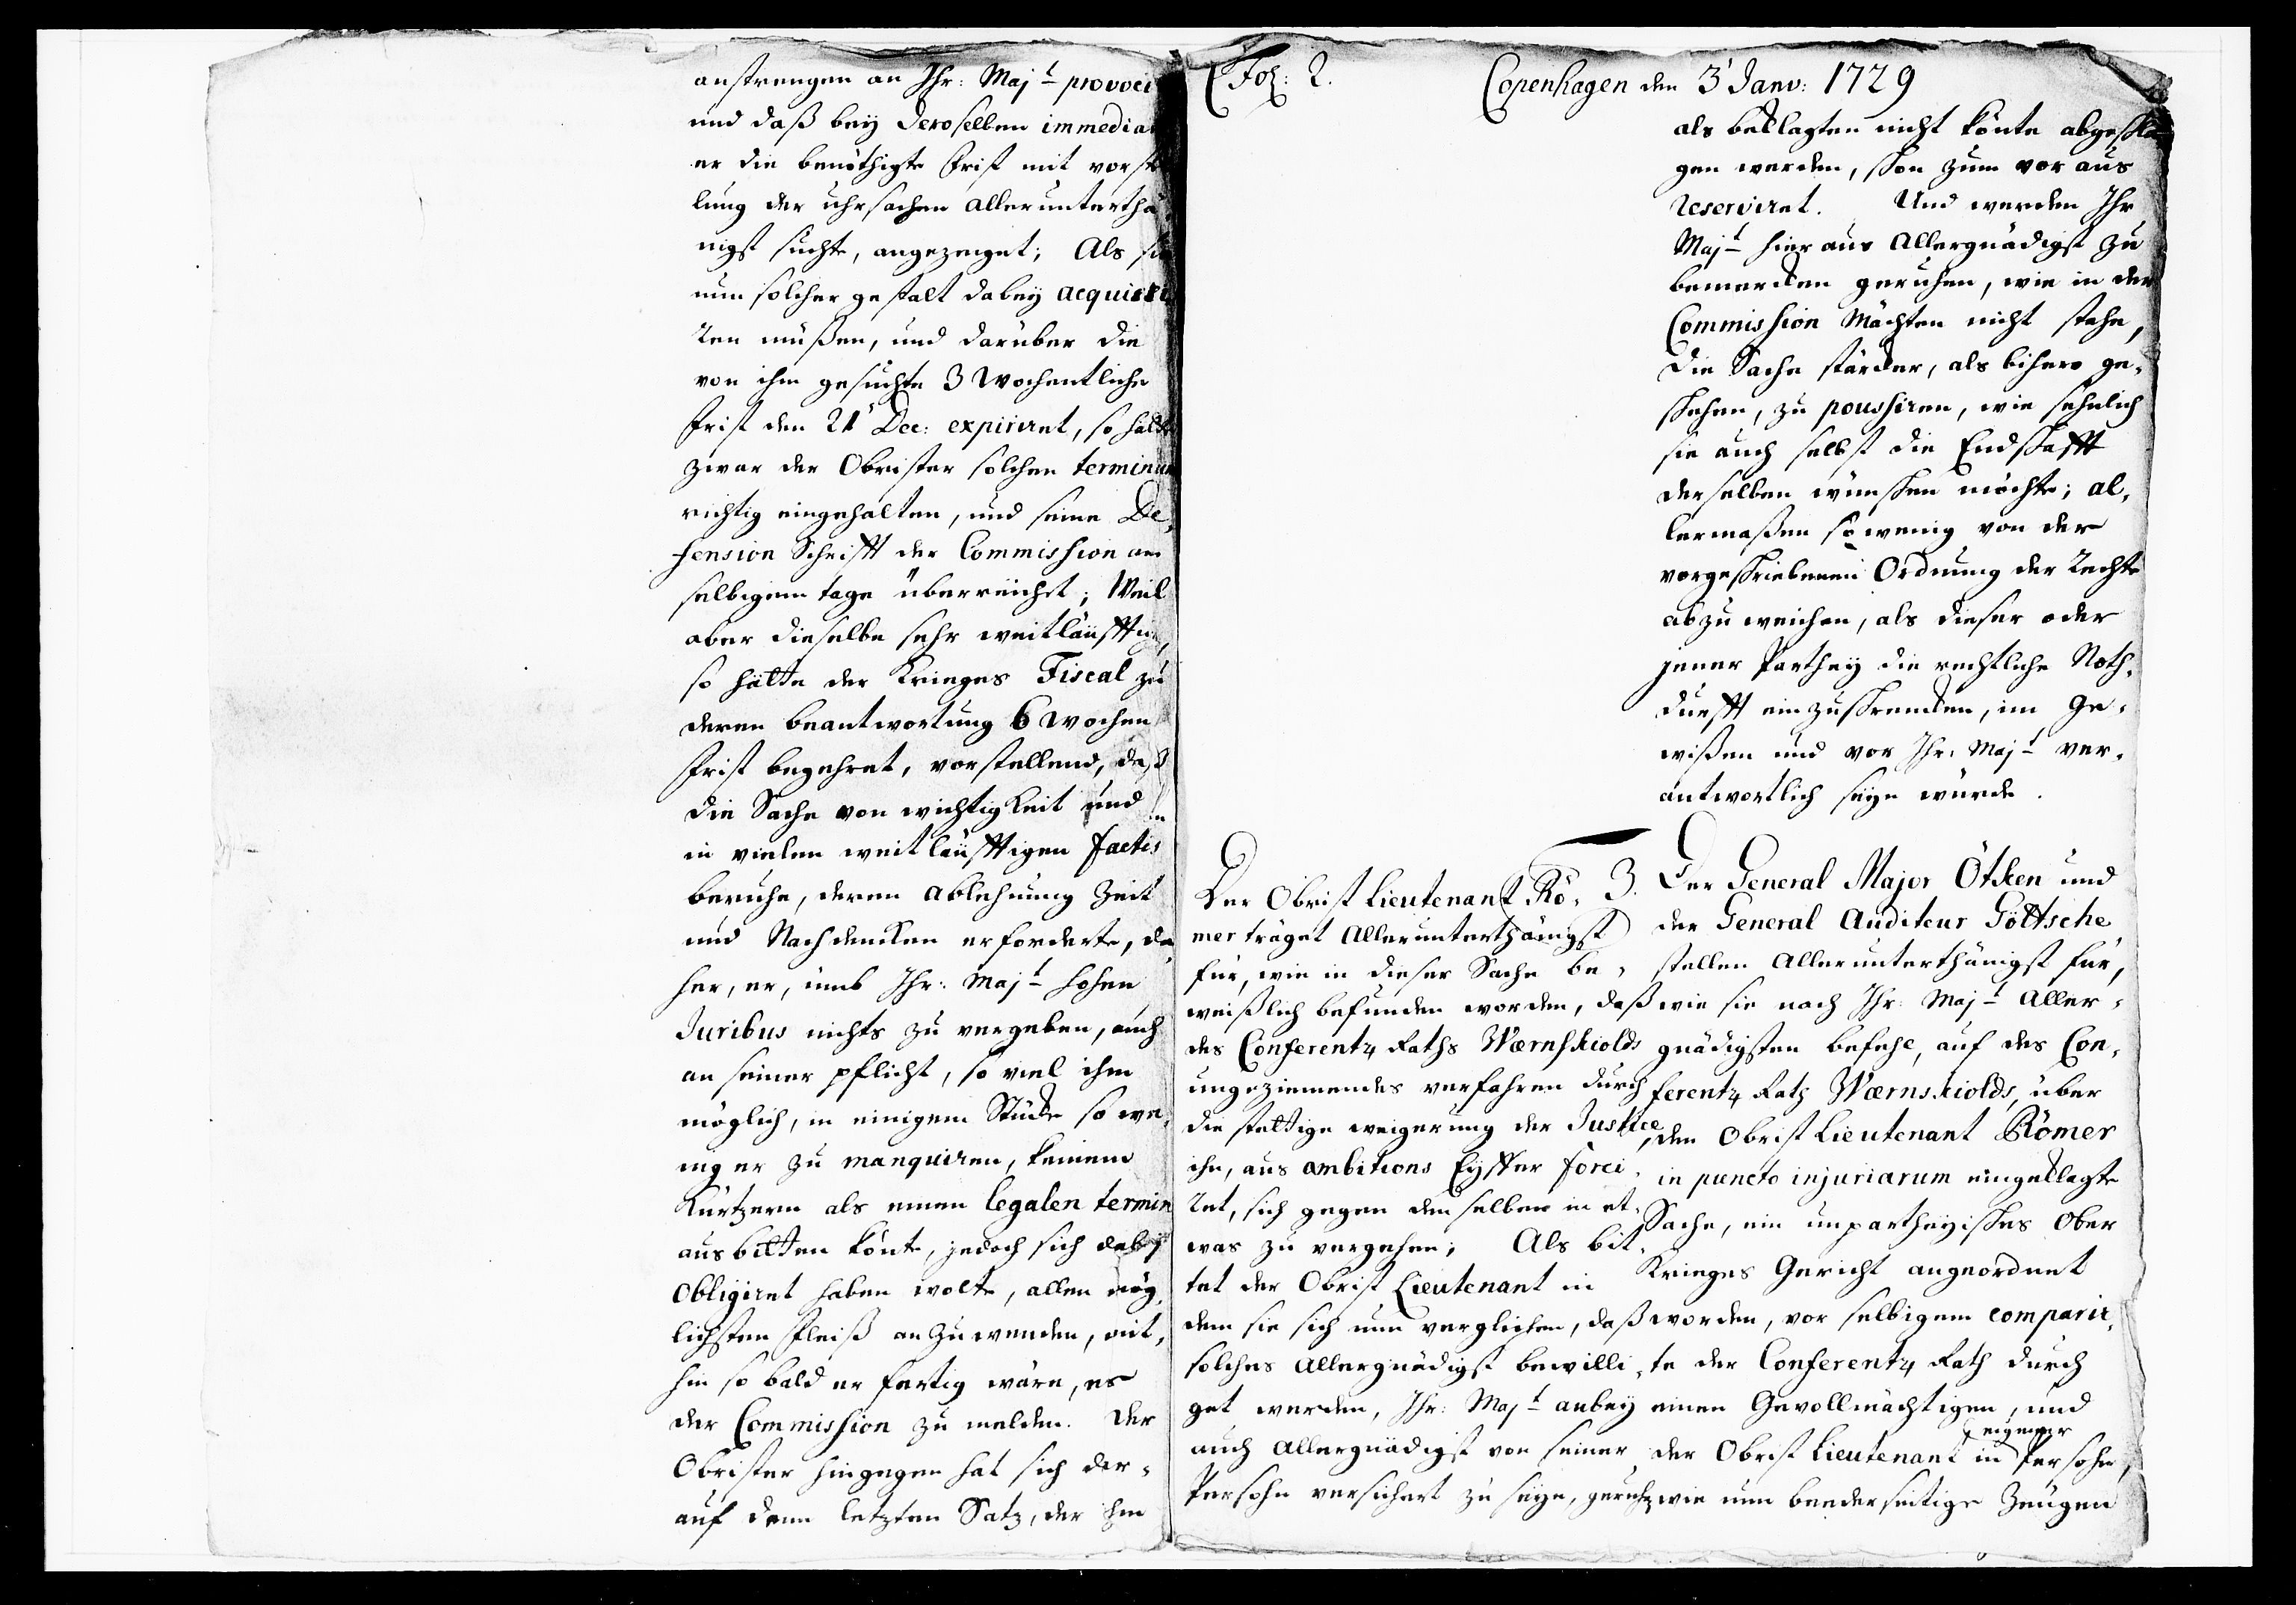 anstrengen an Ihr: Maj.t provoci
und daß bey deroselben immedia
er die benöthigte Frist mit vorst
lung der uhrsachen allerunterthä
nigst suchte, angezeiget; Als sie
nun solcher gestalt dabey acquiesci
ren müßen, und darüber die
von ihm gesuchte 3 Wochentliche
Frist den 21' Dec: expiriret, so hätte
zwar der Obrister solchen terminum
richtig eingehalten, und seine De,
fension Schrifft der Commission am
selbigem tage überreichet; Weil
aber dieselbe sehr weitläufftig,
so hätte der Krieges Fiscal zu
deren beantwortung 6 wochen
Frist begehret, vorstellend, daß
die Sache von wichtigkeit und
in vielen weitläufftigen factis
beruhe, deren ablehnung Zeit
und Nachdencken erforderte, da,
her, er, umb Ihr: Maj.t hohen
Juribus nichts zu vergeben, auch
an seiner pflicht, so viel ihm
möglich, in einigem Stücke so we,
nig er zu manquiren, keinem
Kürtzern als einen legalen termin
ausbitten könte, jedoch sich dabey
obligiret haben wolte, allen mög,
lichsten Fleiß anzuwenden, mit,
hin so bald er fertig wäre, es
der Commission zu melden. Der
Obrister hingegen hat sich dar,
auf denn letzten Satz, der ihm
Fol: 2. Copenhagen den 3' Janv: 1729
als beklagten nicht könte abgeschla
gen werden, schon zum voraus
reserviret. Und werden Ihr
Maj.t hieraus Allergnädigst zu
bemercken geruhen, wie in der
Commission Mächten nicht stehe,
die Sache stärcker, als bishero ge,
schehen, zu poussiren, wie sehnlich
sie auch selbst die Endschafft
derselben wünschen möchte; al,
lermaßen so wenig von der
vorgeschriebenen Ordnung der Rechte
abzuweichen, als dieser oder
jener Parthey die rechtliche Noth,
durfft einzuschrencken, im Ge,
wißen und vor Ihr: Maj.t ver,
antwortlich seyn würde.
Der Obrist Lieutenant Rö,
mer träget Allerunterthänigst
für, wie in dieser Sache be,
weißlich befunden worden, daß
des Conferentz Raths Wærnskiolds
ungeziemendes verfahren durch
die stettige weigerung der Justice,
ihn, aus ambitions Eyffer forci,
ret, sich gegen denselben in et,
was zu vergehen; Als bit,
tet der Obrist Lieutenant in
dem sie sich nun verglichen, daß
solches Allergnädigst bewilli,
get werden, Ihr: Maj.t anbey
auch Allergnädigst von seiner
Persohn versichert zu seyn, geruhz
3. Der General Major Ötken und
der General Auditeur Göttsche
stellen Allerunterthänigst für,
wie sie nach Ihr: Maj.t Aller,
gnädigsten befehl, auf des Con,
ferentz Rath Wærnskiolds, über
den Obrist Lieutenant Römer
in puncto injuriarum eingeklagte
Sache, ein unpartheyisches Ober
Krieges Gericht angeordnet
worden, vor selbigem comparir,
te der Conferentz Rath durch
einen Gevollmächtigen, und
der Obrist Lieutenant in eigener Persohn,
wie nun beederseitige Zeugen